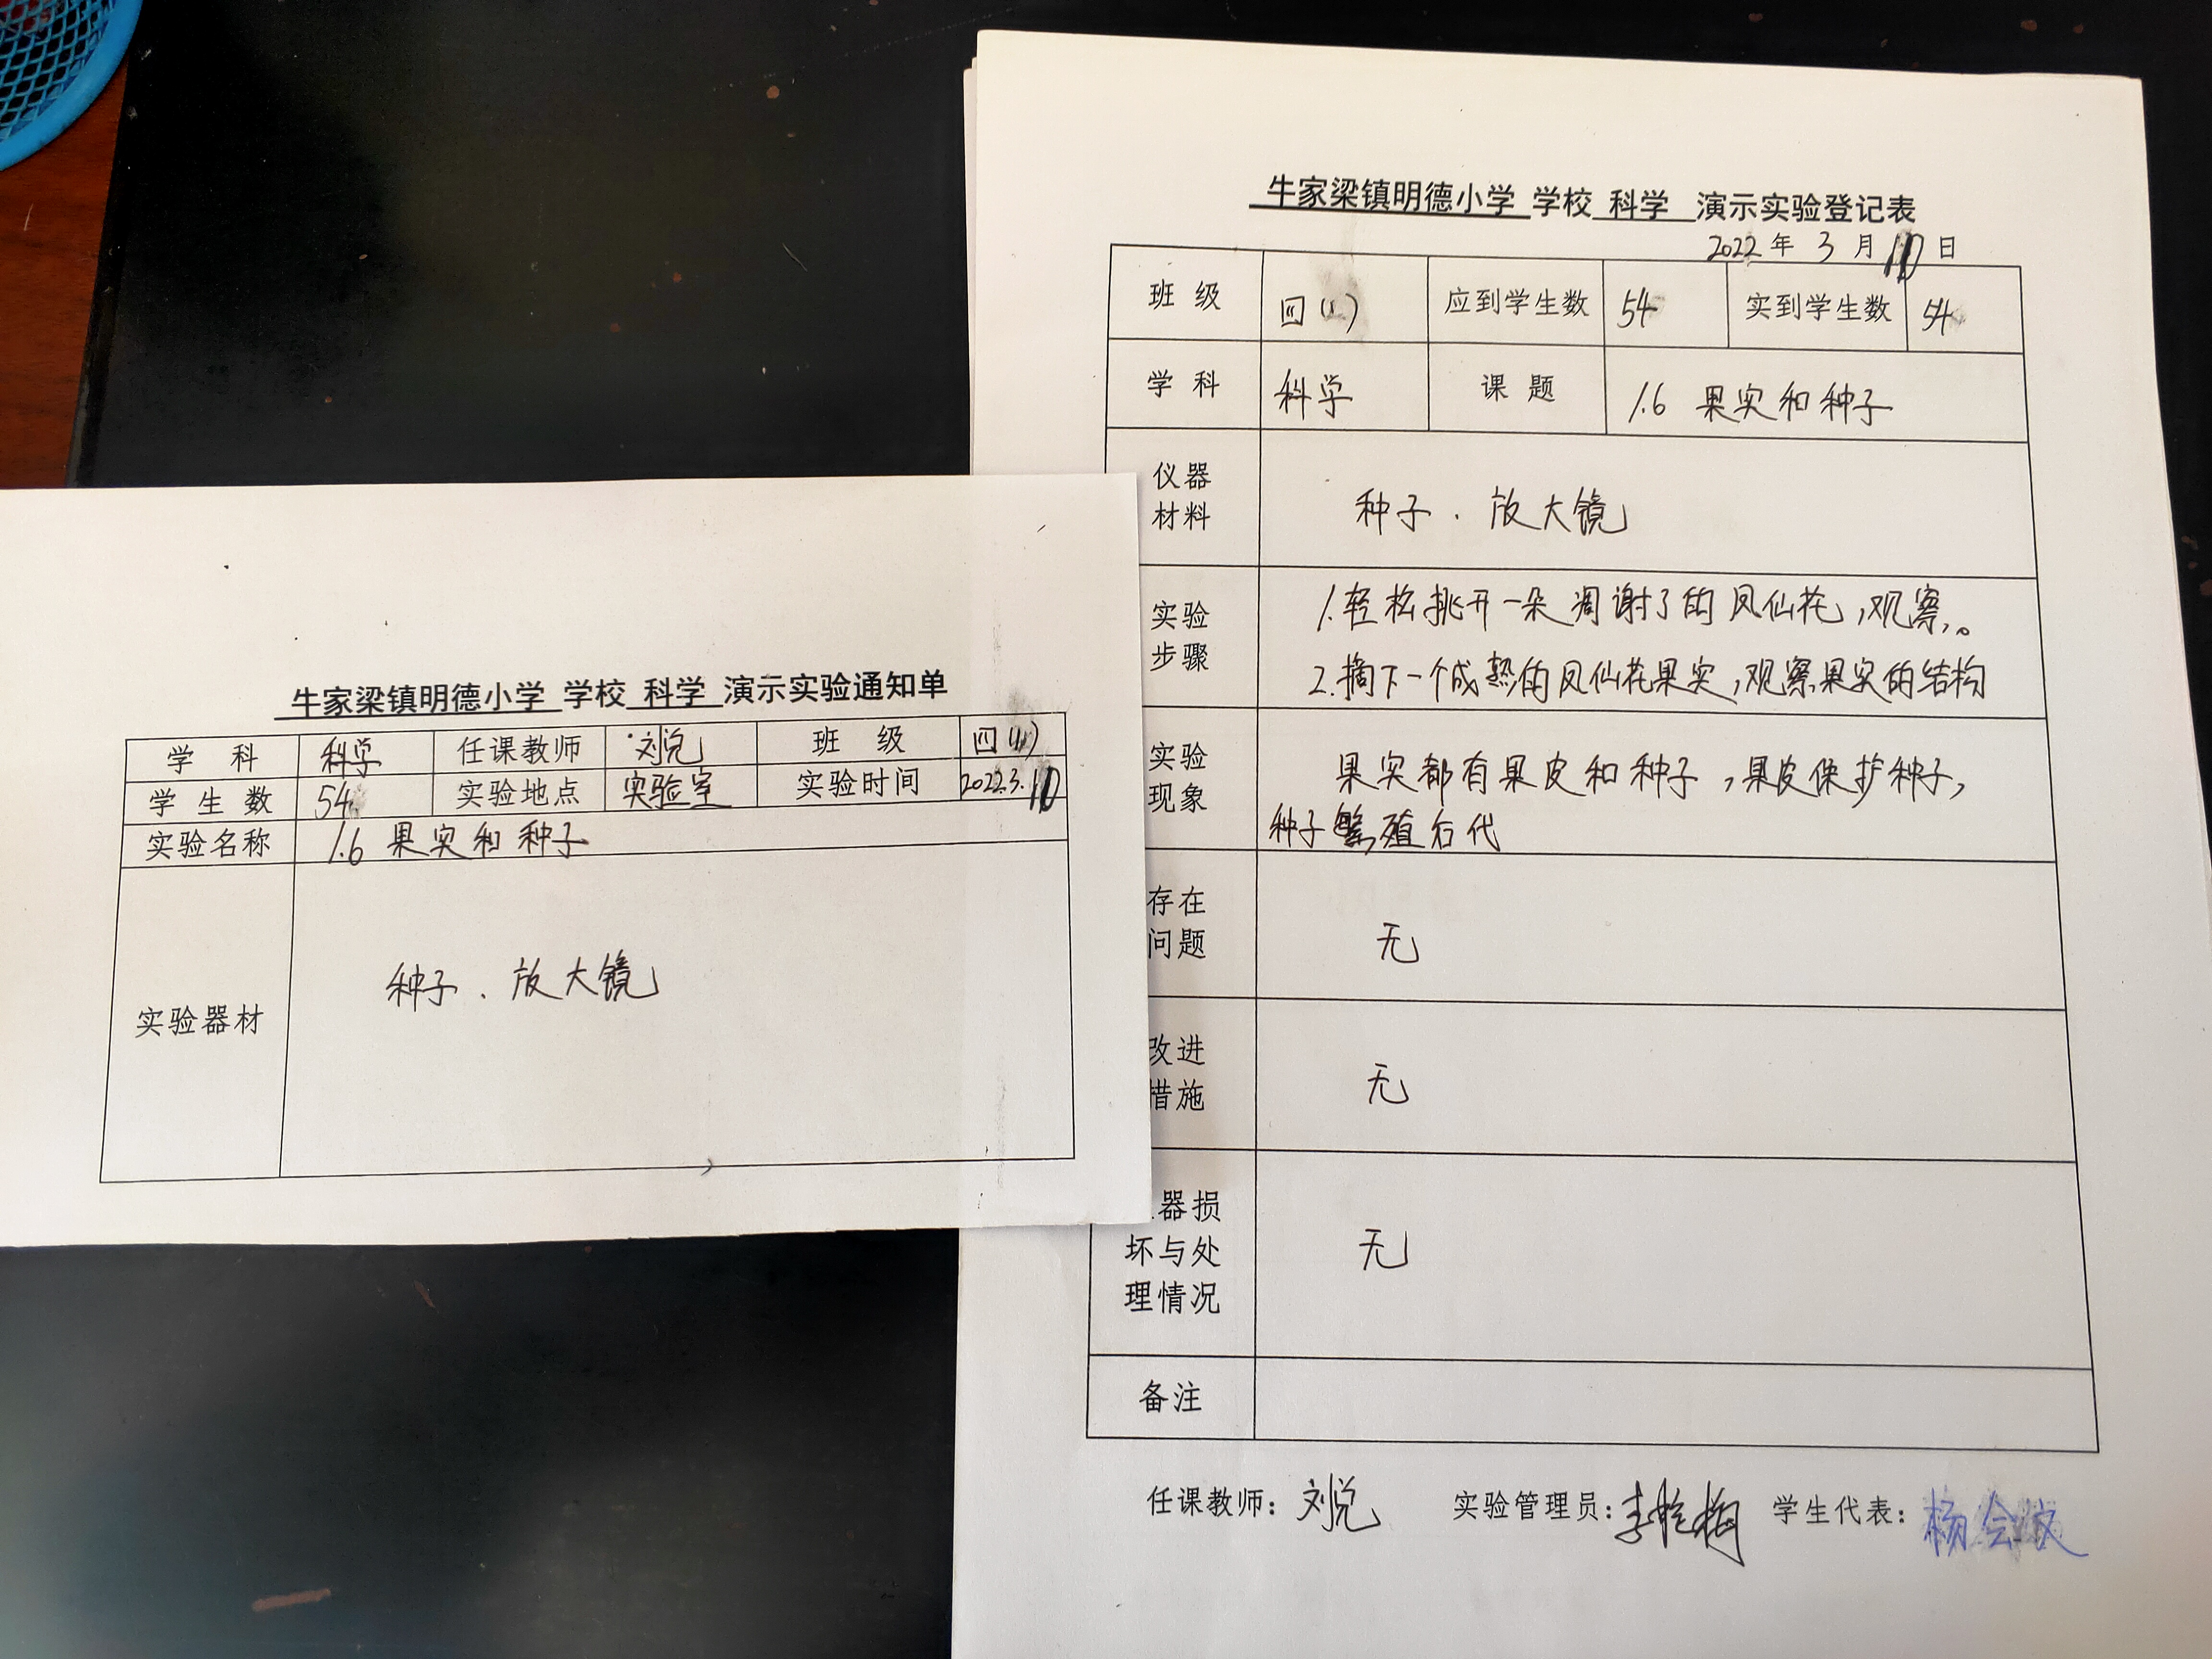 牛家梁镇明德小学 学校 科学 演示实验通知单
学 科 科学 任课教师 刘悦 班 级 四(1)
学 生 数 54 实验地点 实验室 实验时间 2022.3.10
实验名称 1.6 果实和种子
实验器材 种子、放大镜
牛家梁镇明德小学 学校 科学 演示实验登记表
2022 年 3 月 10 日
班 级 四(1) 应到学生数 54 实到学生数 54
学 科 科学 课 题 1.6 果实和种子
仪器
材料
种子、放大镜
实验
步骤
1.轻松挑开一朵凋谢了的凤仙花,观察。
2.摘下一个成熟的凤仙花果实,观察果实的结构
实验
现象
果实都有果皮和种子,果皮保护种子,
种子繁殖后代
存在
问题
无
改进
措施
无
器损
坏与处
理情况
无
备注
任课教师: 刘悦 实验管理员: 学生代表: